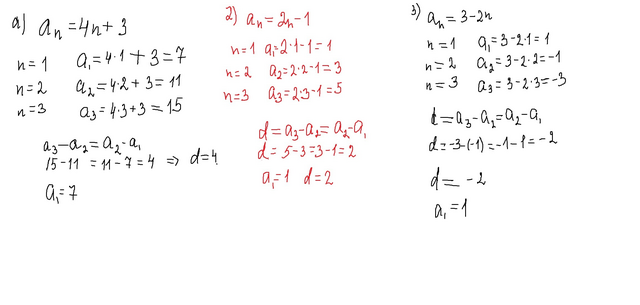 a) aₙ = 4n + 3
n = 1 a₁ = 4·1 + 3 = 7
n = 2 a₂ = 4·2 + 3 = 11
n = 3 a₃ = 4·3 + 3 = 15
a₃ - a₂ = a₂ - a₁
15 - 11 = 11 - 7 = 4 ⇒ d = 4
a₁ = 7
2) aₙ = 2n - 1
n = 1 a₁ = 2·1 - 1 = 1
n = 2 a₂ = 2·2 - 1 = 3
n = 3 a₃ = 2·3 - 1 = 5
d = a₃ - a₂ = a₂ - a₁
d = 5 - 3 = 3 - 1 = 2
a₁ = 1 d = 2
3) aₙ = 3 - 2n
n = 1 a₁ = 3 - 2·1 = 1
n = 2 a₂ = 3 - 2·2 = -1
n = 3 a₃ = 3 - 2·3 = -3
d = a₃ - a₂ = a₂ - a₁
d = -3 - (-1) = -1 - 1 = -2
d = -2
a₁ = 1